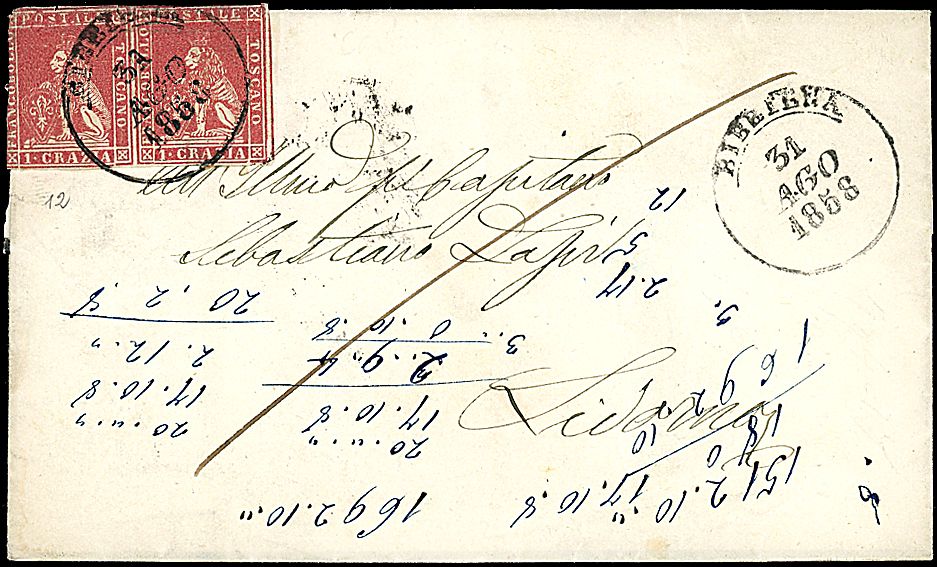 POSTALE
TOSCANO
FRANCOBOLLO
1·CRAZIA
POSTALE
TOSCANO
FRANCOBOLLO
1·CRAZIA
BIBBIENA
31
AGO
1858
BIBBIENA
31
AGO
1858
12
All'Illmo Sigr Capitano
Sebastiano
Livorno
12
5
2.17
3.
169
1692.10.„
20.„.„
17.10.8
2. 9. 4
3.„
0.10.8
20.„.„
17.10.8
2.12.„
20.2.8
151
2.10.„
17.10.8